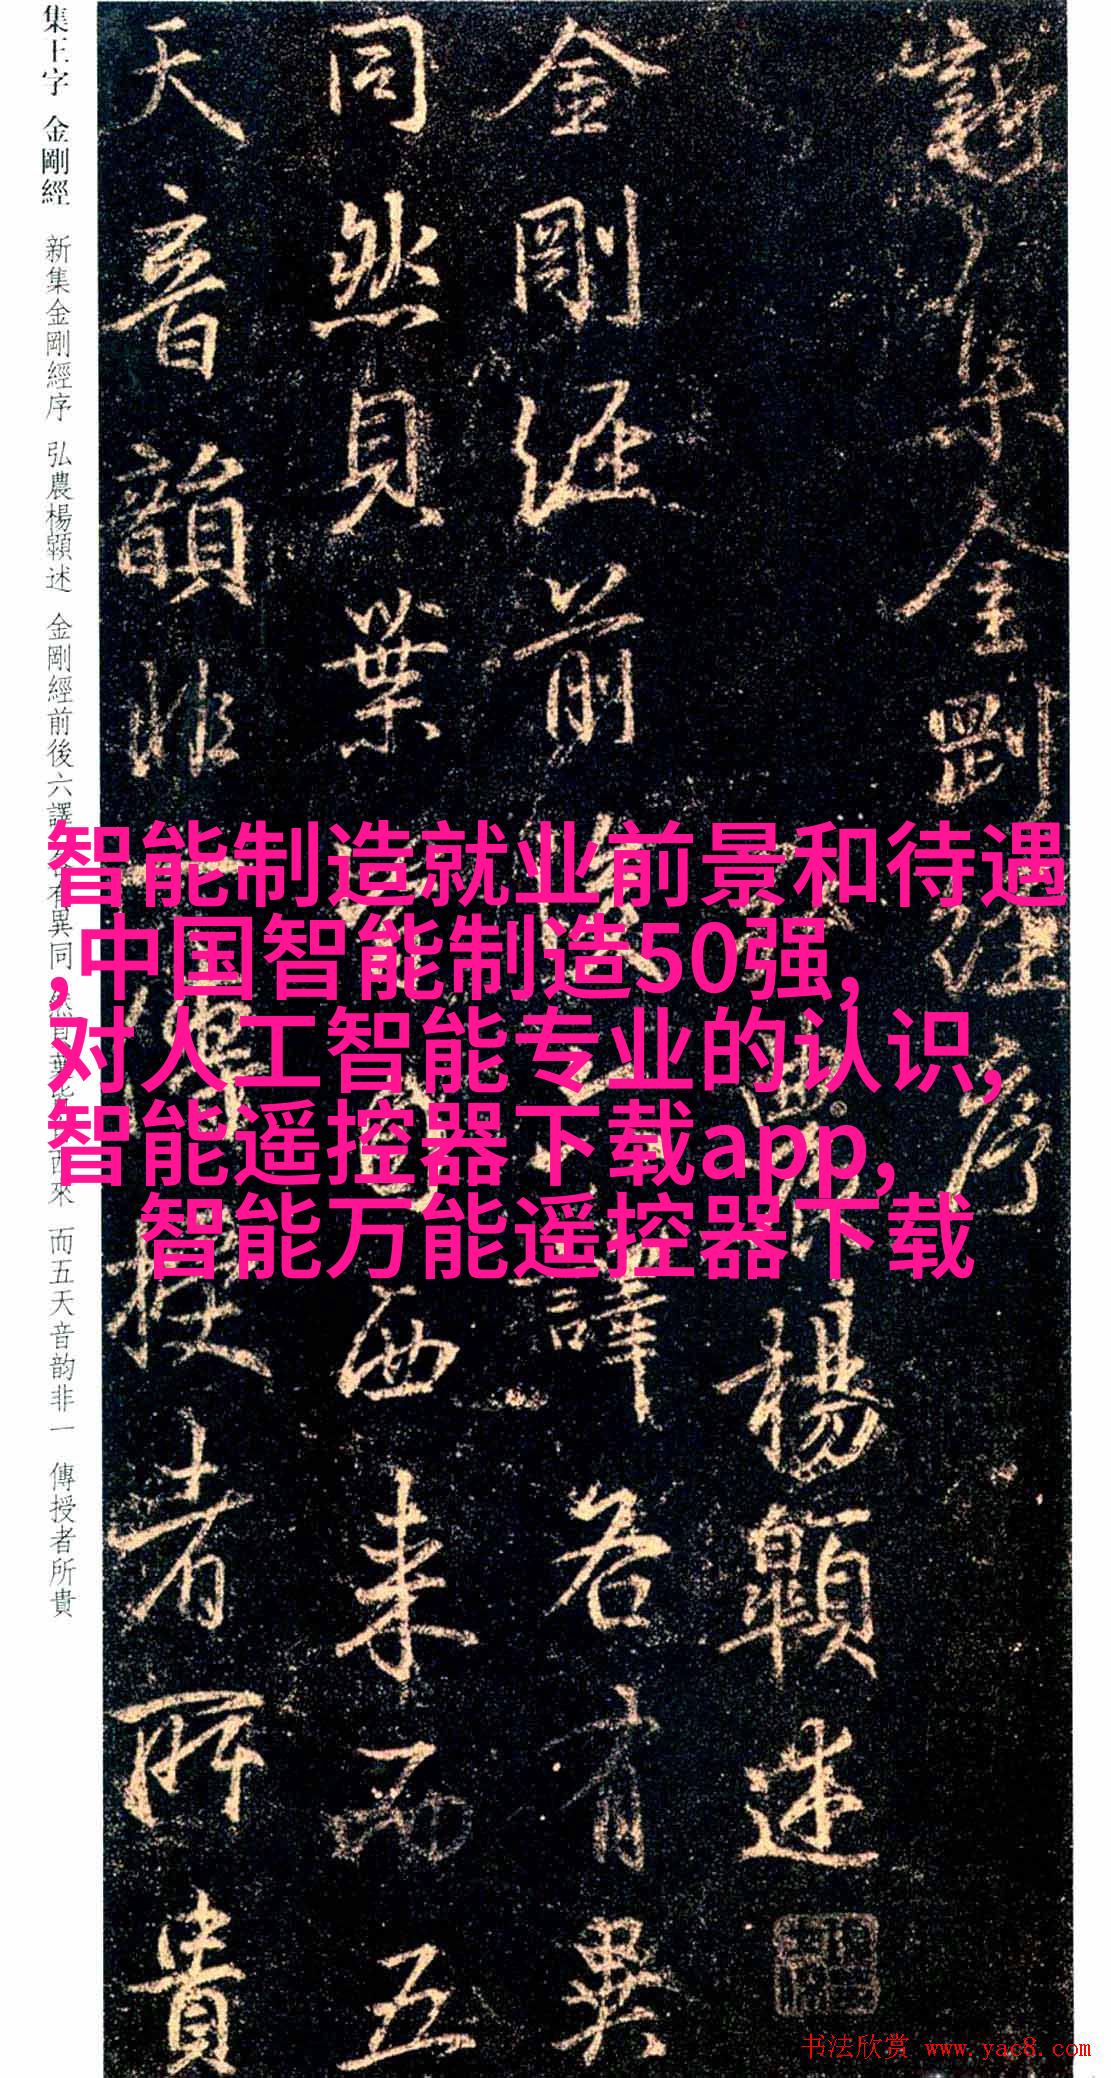 新集金剛經序
楊述
金剛經前譯各有異
同然貝葉西来而五
天音韻非傳授者所貴
集王字 金剛經 新集金剛經序 弘農楊述 金剛經前後六譯有異同 然貝葉西來 而五天音韵非一 傳授者所貴
智能制造就业前景和待遇
,中国智能制造50强,
对人工智能专业的认识,
智能遥控器下载app,
智能万能遥控器下载
书法欣赏 www.yac8.com